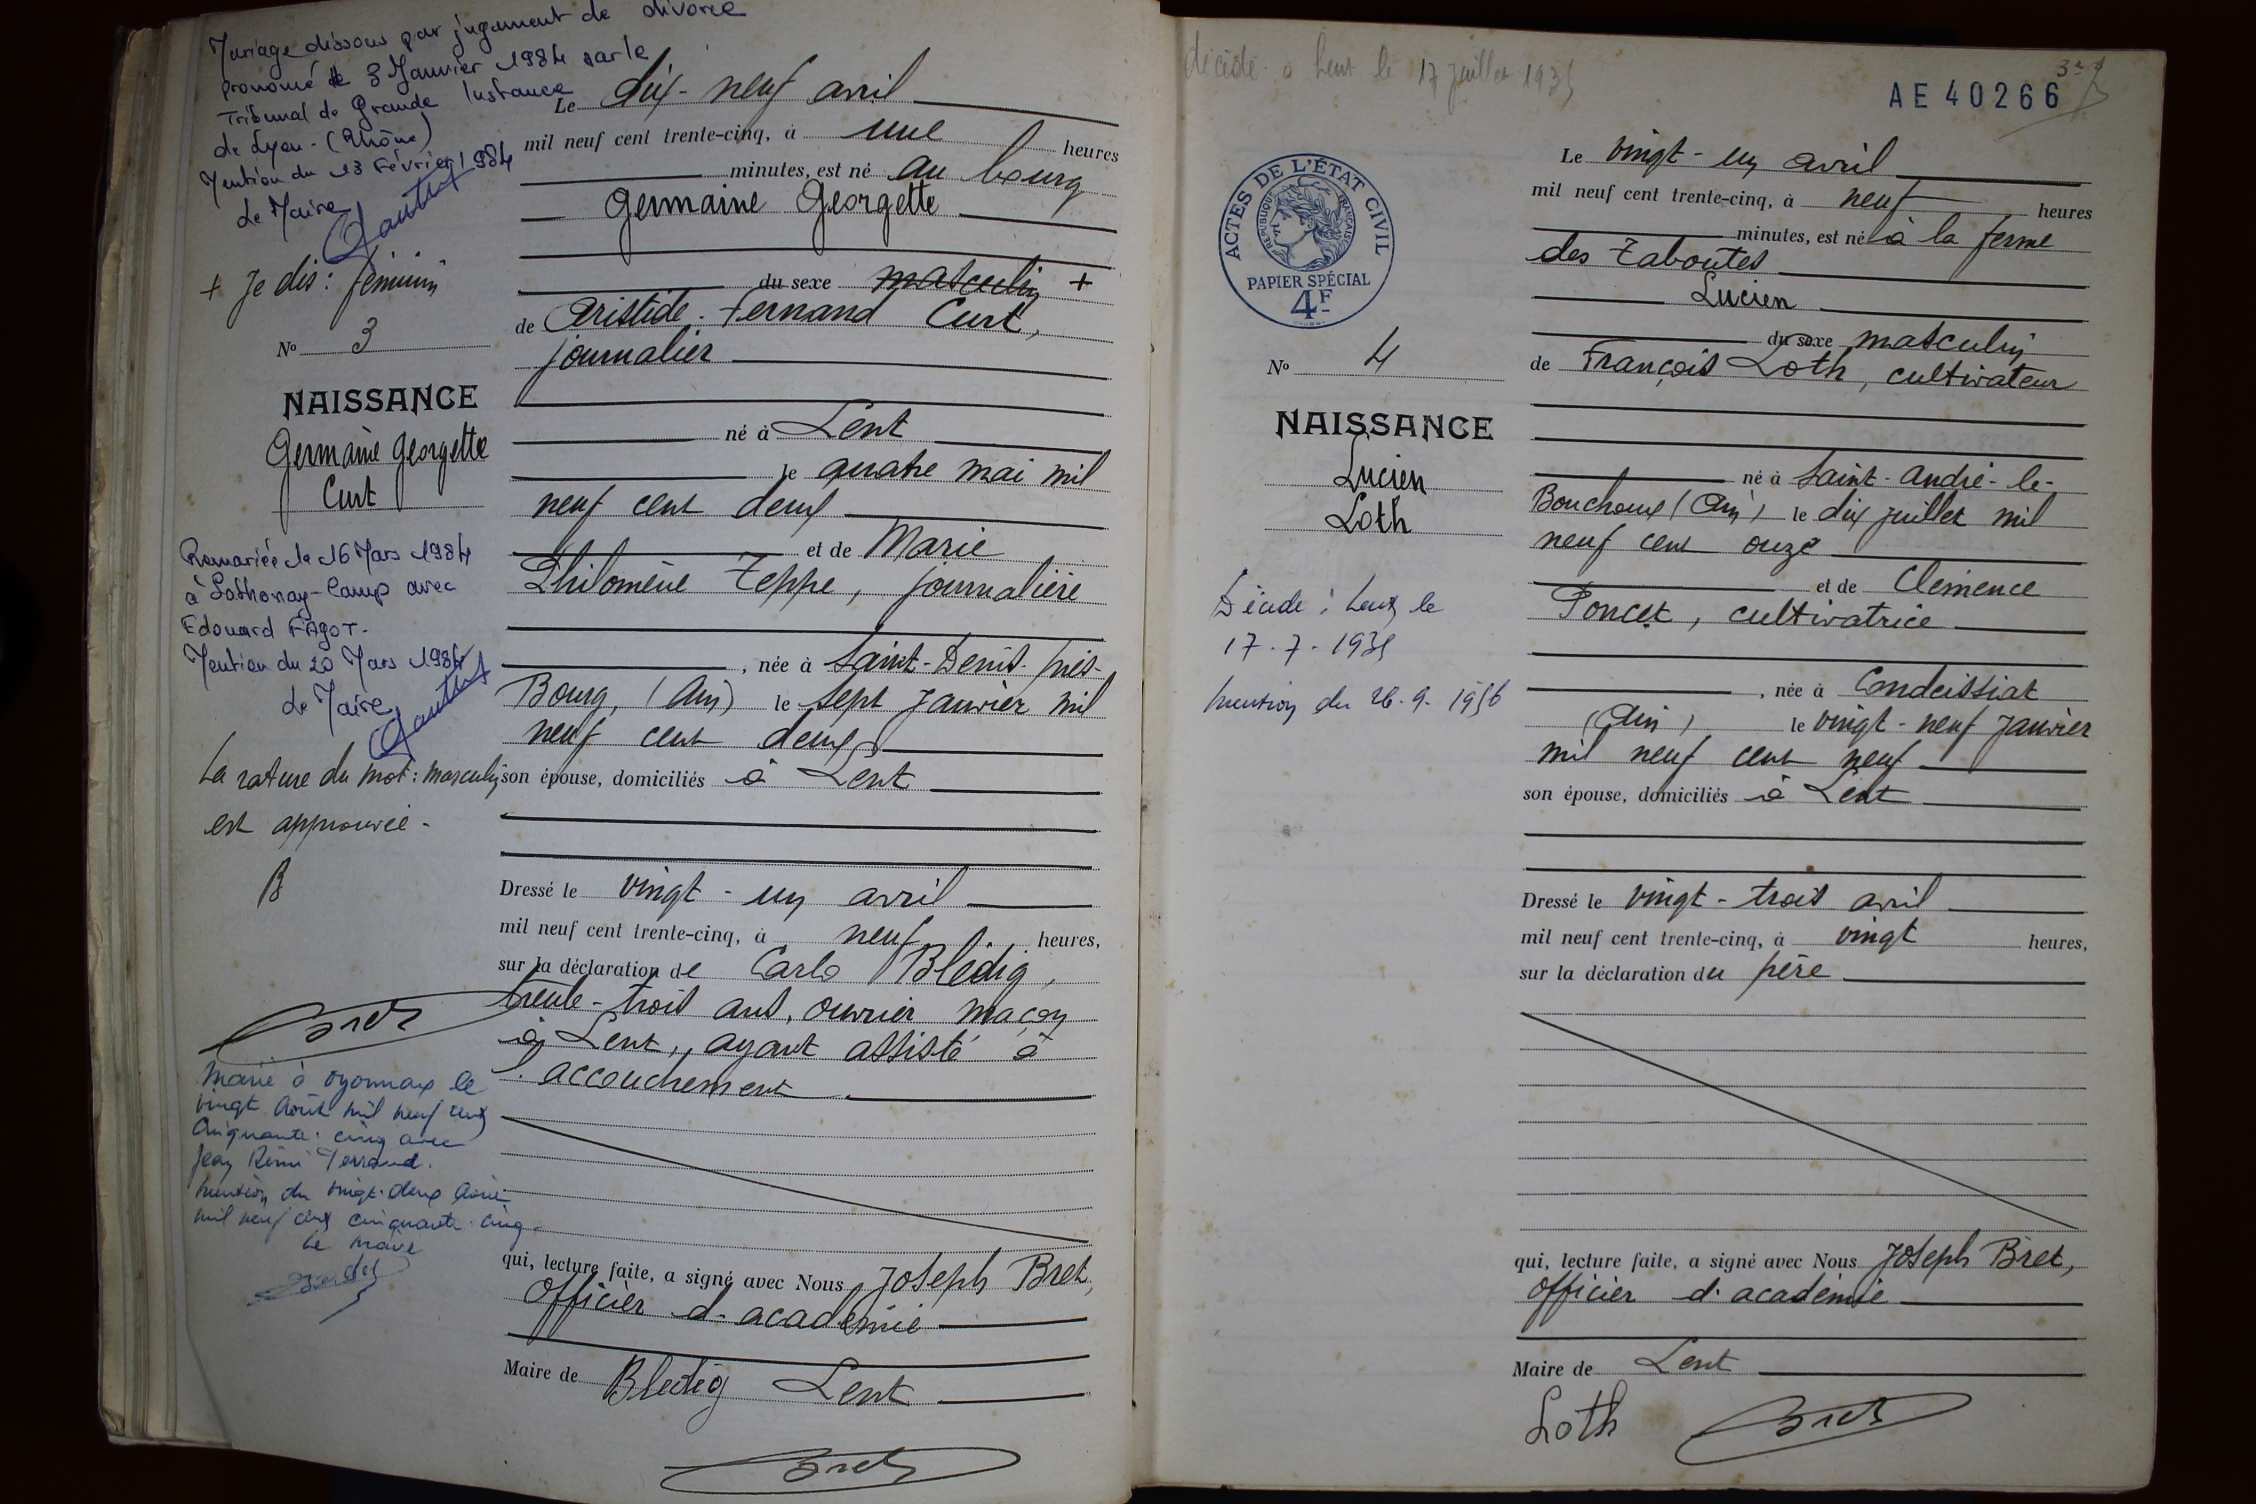 Mariage dissous par jugement de divorce
prononcé le 3 Janvier 1984 par le
Tribunal de Grande Instance
de Lyon - (Rhône)
Mention du 13 Février 1984
Le Maire
+ Je dis : féminin
N° 3
NAISSANCE
Germaine Georgette
Curt
Remariée le 16 Mars 1984
à Sathonay-Camp avec
Edouard FAGOT-
Mention du 20 Mars 1984
Le Maire
La rature du mot : masculin
est approuvée -
B
Bret
Marié à Oyonnax le
vingt Août mil neuf cent
cinquante-cinq avec
Jean Rémi
Mention du vingt-deux Août
mil neuf cent cinquante-cinq-
Le Maire
Le dix-neuf avril
mil neuf cent trente-cinq, à une heures
minutes, est né au bourg
Germaine Georgette
du sexe masculin +
de Aristide-Fernand Curt,
journalier
né à Lent
le quatre mai mil
neuf cent deux
et de Marie
Philomène Teppe, journalière
, née à Saint-Denis-près-
Bourg, (Ain) le sept Janvier mil
neuf cent deux
son épouse, domiciliés à Lent
Dressé le vingt-un avril
mil neuf cent trente-cinq, à neuf heures,
sur la déclaration de Carlo Blédig,
trente-trois ans, ouvrier maçon
à Lent, ayant assisté à
l'accouchement
qui, lecture faite, a signé avec Nous Joseph Bret,
officier d'académie
Maire de Lent
Bledig
Bret
décédé à Lent le 17 juillet 1935
AE 40266
ACTES DE L'ÉTAT CIVIL
RÉPUBLIQUE FRANÇAISE
PAPIER SPÉCIAL
4F
N° 4
NAISSANCE
Lucien
Loth
Décédé à Lent le
17-7-1935
Mention du 26-9-1956
Le vingt-un avril
mil neuf cent trente-cinq, à neuf heures
minutes, est né à la ferme
des Taboutes
Lucien
du sexe masculin
de François Loth, cultivateur
né à Saint-André-le-
Bouchoux (Ain) le dix juillet mil
neuf cent onze
et de Clémence
Poncet, cultivatrice
, née à Condeissiat
(Ain) le vingt-neuf Janvier
mil neuf cent neuf
son épouse, domiciliés à Lent
Dressé le vingt-trois avril
mil neuf cent trente-cinq, à vingt heures,
sur la déclaration du père
qui, lecture faite, a signé avec Nous Joseph Bret,
officier d'académie
Maire de Lent
Loth
Bret